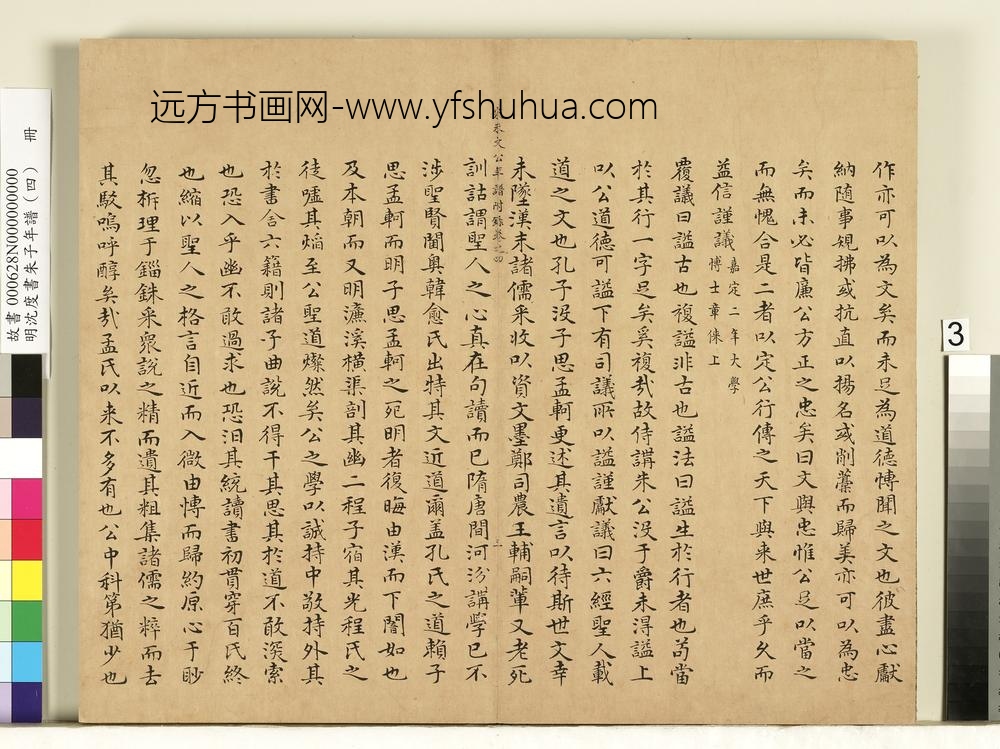 远方书画网-www.yfshuhua.com
作亦可以為文矣而未足為道德博聞之文也彼盡心獻
納隨事規拂或抗直以揚名或削藁而歸美亦可以為忠
矣而未必皆廉公方正之忠矣曰文與忠惟公足以當之
而無愧合是二者以定公行傳之天下與来世庶乎久而
益信謹議嘉定二年大學
博士章倈上
覆議曰謚古也複謚非古也謚法曰謚生於行者也苟當
於其行一字足矣奚複㢤故侍講朱公沒于爵未得謚上
以公道德可謚下有司議所以謚謹獻議曰六經聖人載
道之文也孔子沒子思孟軻更述其遺言以待斯世文幸
未墜漢末諸儒采收以資文墨鄭司農王輔嗣輩又老死
朱文公年譜附錄卷之四
訓詁謂聖人之心真在句讀而已隋唐間河汾講學已不
涉聖賢閫奧韓愈氏出特其文近道爾盖孔氏之道賴子
思孟軻而明子思孟軻之死明者復晦由漢而下闇如也
及本朝而又明濂溪橫渠剖其幽二程子宿其光程氏之
徒噓其焰至公聖道燦然矣公之學以誠持中敬持外其
於書舍六籍則諸子曲說不得干其思其於道不敢深索
也恐入乎幽不敢過求也恐汨其統讀書初貫穿百氏終
也縮以聖人之格言自近而入微由博而歸約原心于眇
忽析理于錙銖采衆說之精而遺其粗集諸儒之粹而去
其駁嗚呼醇矣㢤孟氏以来不多有也公中科第猶少也
故書 000628N000000000
明沈度書朱子年譜（四） 冊
3